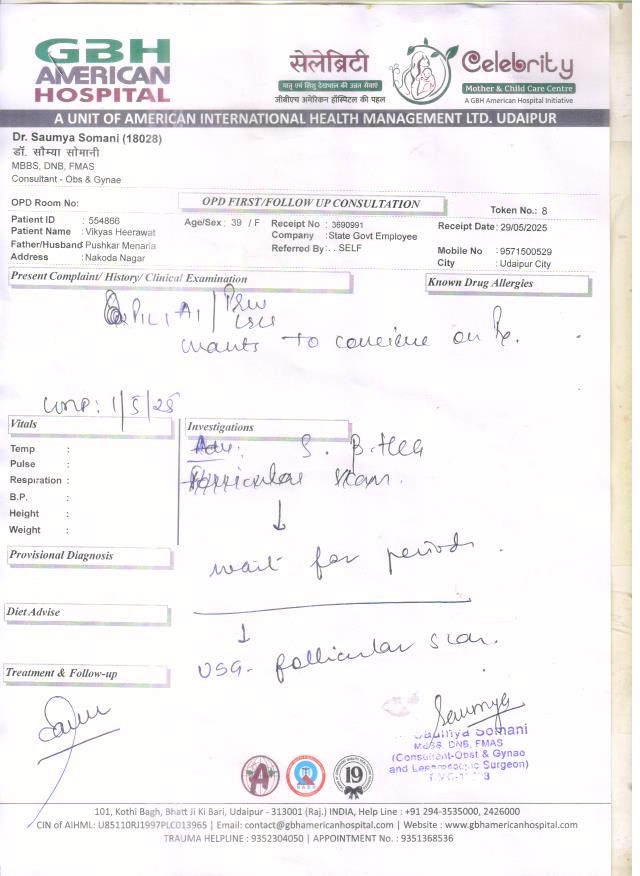 GBH
AMERICAN
HOSPITAL
सेलेब्रिटी
मातृ एवं शिशु देखभाल की उन्नत सेवाएं
जीबीएच अमेरिकन हॉस्पिटल की पहल
Celebrity
Mother & Child Care Centre
A GBH American Hospital Initiative
A UNIT OF AMERICAN INTERNATIONAL HEALTH MANAGEMENT LTD. UDAIPUR
Dr. Saumya Somani (18028)
डॉ. सौम्या सोमानी
MBBS, DNB, FMAS
Consultant - Obs & Gynae
OPD Room No:
OPD FIRST/FOLLOW UP CONSULTATION
Token No.: 8
Patient ID : 554866
Age/Sex : 39 / F
Receipt No : 3690991
Receipt Date: 29/05/2025
Patient Name : Vikyas Heerawat
Company : State Govt Employee
Father/Husband Pushkar Menaria
Referred By: . . SELF
Mobile No : 9571500529
Address : Nakoda Nagar
City : Udaipur City
Present Complaint/ History/ Clinical Examination
Known Drug Allergies
P1L1A1 /
LSCS
wants to conceive on Rx.
LMP: 1/5/25
Vitals
Investigations
Temp :
Pulse :
Respiration :
B.P. :
Height :
Weight :
Adv. S. β-HCG
Follicular scan.
↓
wait for periods.
Provisional Diagnosis
Diet Advise
↓
USG- follicular scan.
Treatment & Follow-up
Saumya
Saumya Somani
MBBS, DNB, FMAS
(Consultant-Obst & Gynae
and Leparoscopic Surgeon)
101, Kothi Bagh, Bhatt Ji Ki Bari, Udaipur - 313001 (Raj.) INDIA, Help Line : +91 294-3535000, 2426000
CIN of AIHML: U85110RJ1997PLC013965 | Email: contact@gbhamericanhospital.com | Website : www.gbhamericanhospital.com
TRAUMA HELPLINE : 9352304050 | APPOINTMENT No. : 9351368536